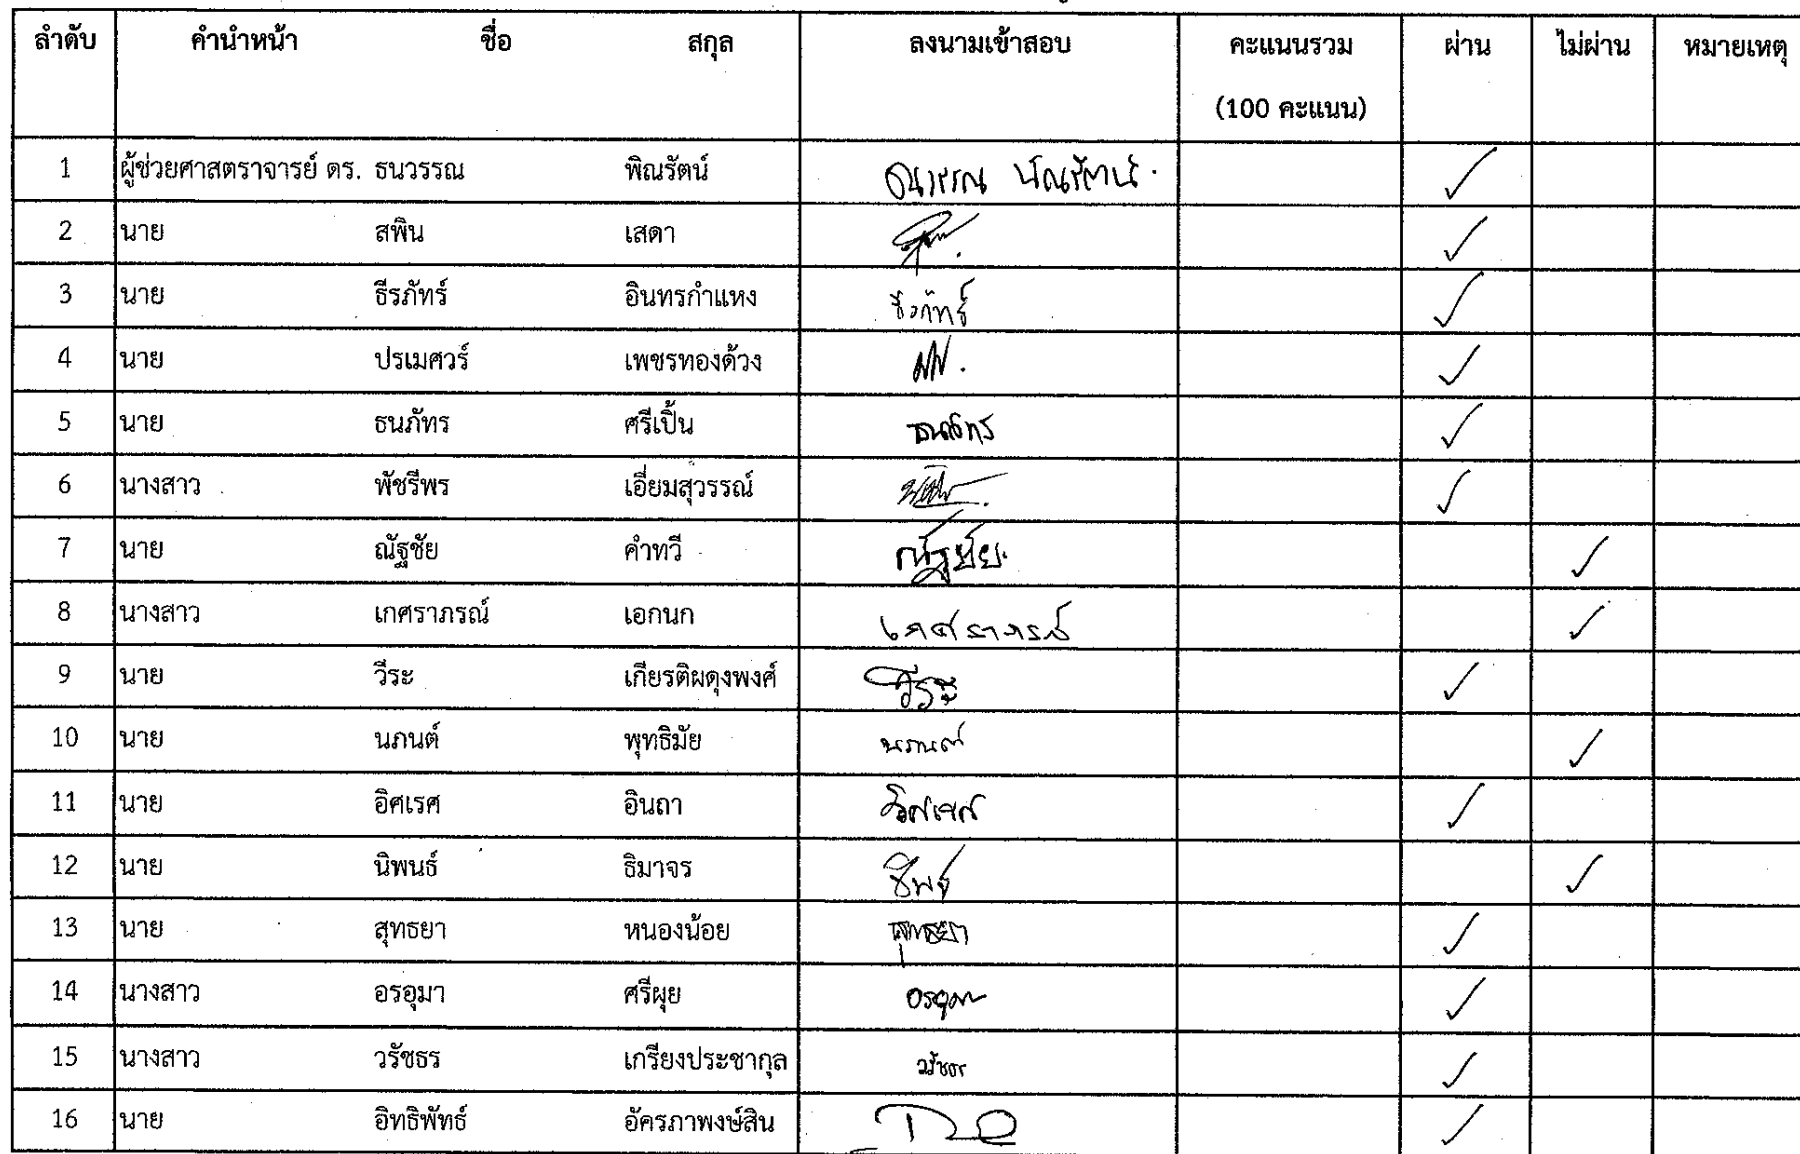 ลำดับ คำนำหน้า ชื่อ สกุล ลงนามเข้าสอบ คะแนนรวม ผ่าน ไม่ผ่าน หมายเหตุ
(100 คะแนน)
1 ผู้ช่วยศาสตราจารย์ ดร. ธนวรรณ พิณรัตน์ ธนวรรณ พิณรัตน์ ✓
2 นาย สพิน เสดา ✓
3 นาย ธีรภัทร์ อินทรกำแหง ธีรภัทร์ ✓
4 นาย ปรเมศวร์ เพชรทองด้วง ✓
5 นาย ธนภัทร ศรีเปิ้น ธนภัทร ✓
6 นางสาว พัชรีพร เอี่ยมสุวรรณ์ ✓
7 นาย ณัฐชัย คำทวี ณัฐชัย. ✓
8 นางสาว เกศราภรณ์ เอกนก เกศราภรณ์ ✓
9 นาย วีระ เกียรติผดุงพงศ์ วีระ ✓
10 นาย นภนต์ พุทธิมัย นภนต์ ✓
11 นาย อิศเรศ อินถา อิศเรศ ✓
12 นาย นิพนธ์ ธิมาจร ✓
13 นาย สุทธยา หนองน้อย สุทธยา ✓
14 นางสาว อรอุมา ศรีผุย อรอุมา ✓
15 นางสาว วรัชธร เกรียงประชากุล วรัชธร ✓
16 นาย อิทธิพัทธ์ อัครภาพงษ์สิน ✓